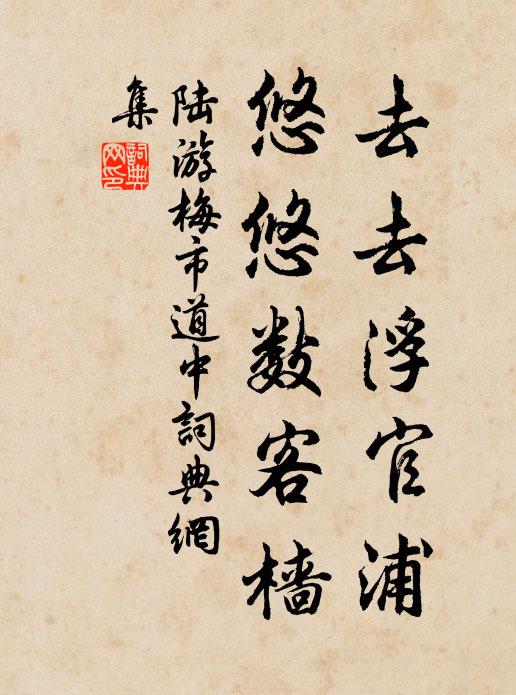 去去浮官浦
悠悠数客樯
陆游梅市道中詞典網
集
詞典
网印